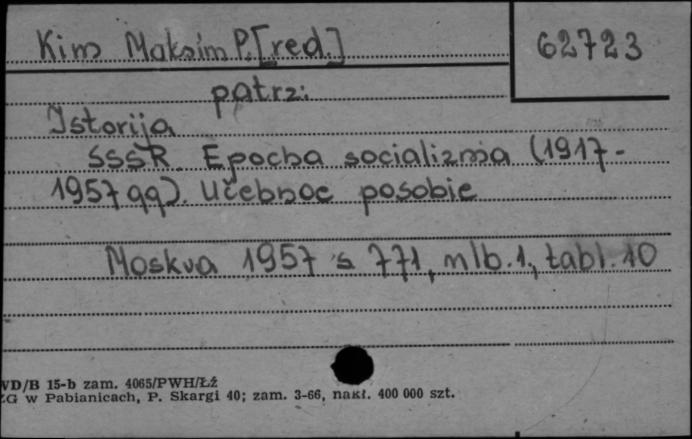 Kim Maksim P. [red.]
62723
patrz:
Istorija
SSSR. Epocha socializma (1917-
1957 gg). Učebnoe posobie
Moskva 1957 s 771, nlb. 1, tabl. 10
WD/B 15-b zam. 4065/PWH/Łź
ZG w Pabianicach, P. Skargi 40; zam. 3-66, nakł. 400 000 szt.